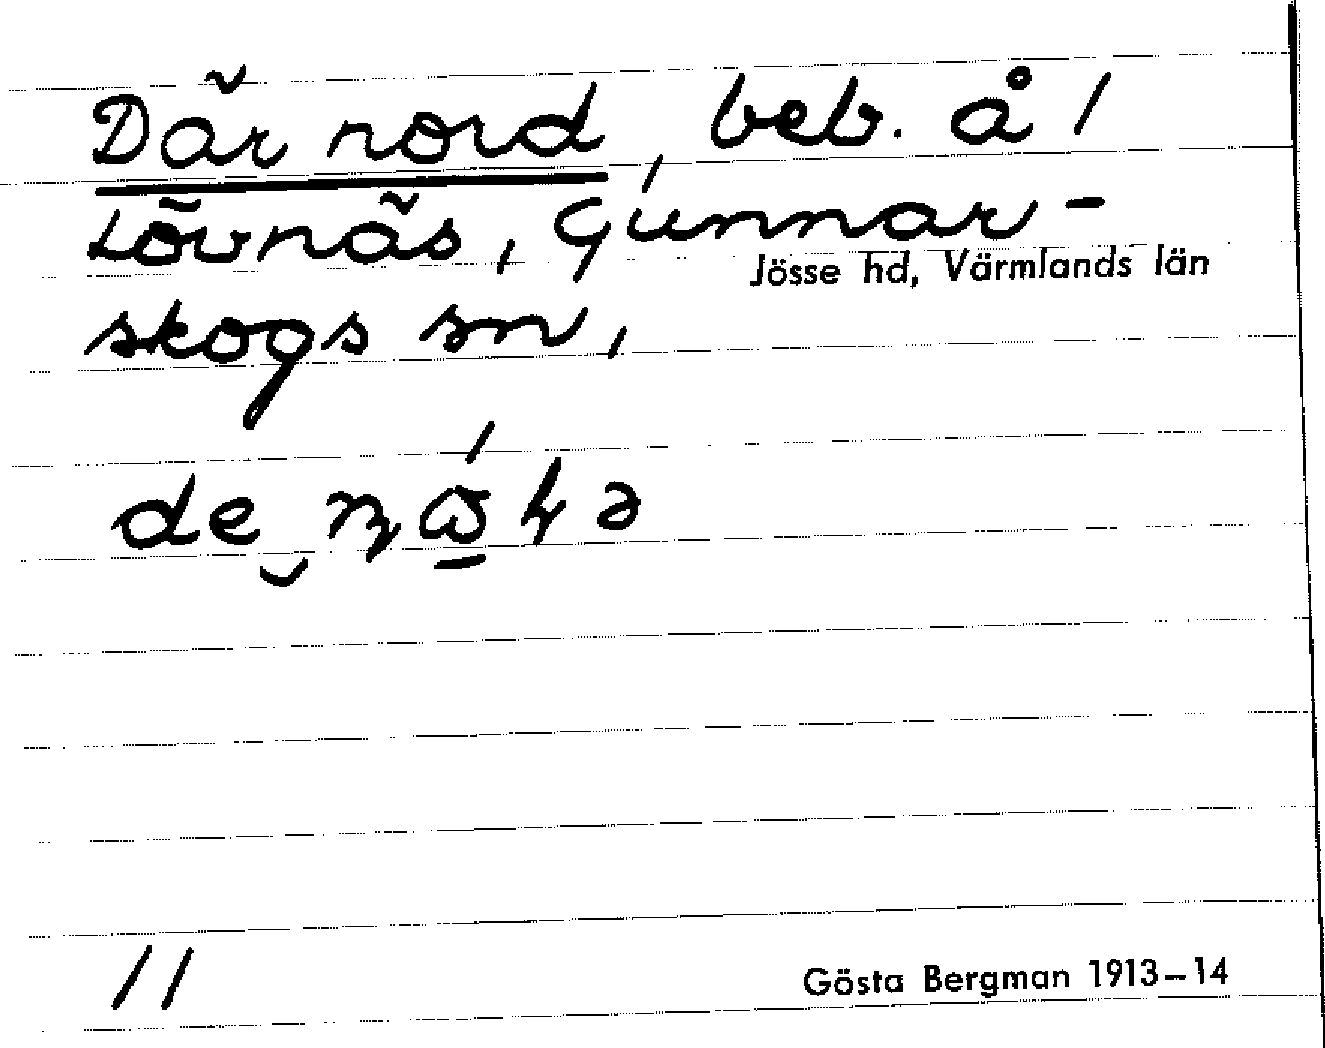 Där nord, beb. å 1
Lövnäs, Gunnar-
Jösse hd, Värmlands län
skogs sn,
11
Gösta Bergman 1913–14